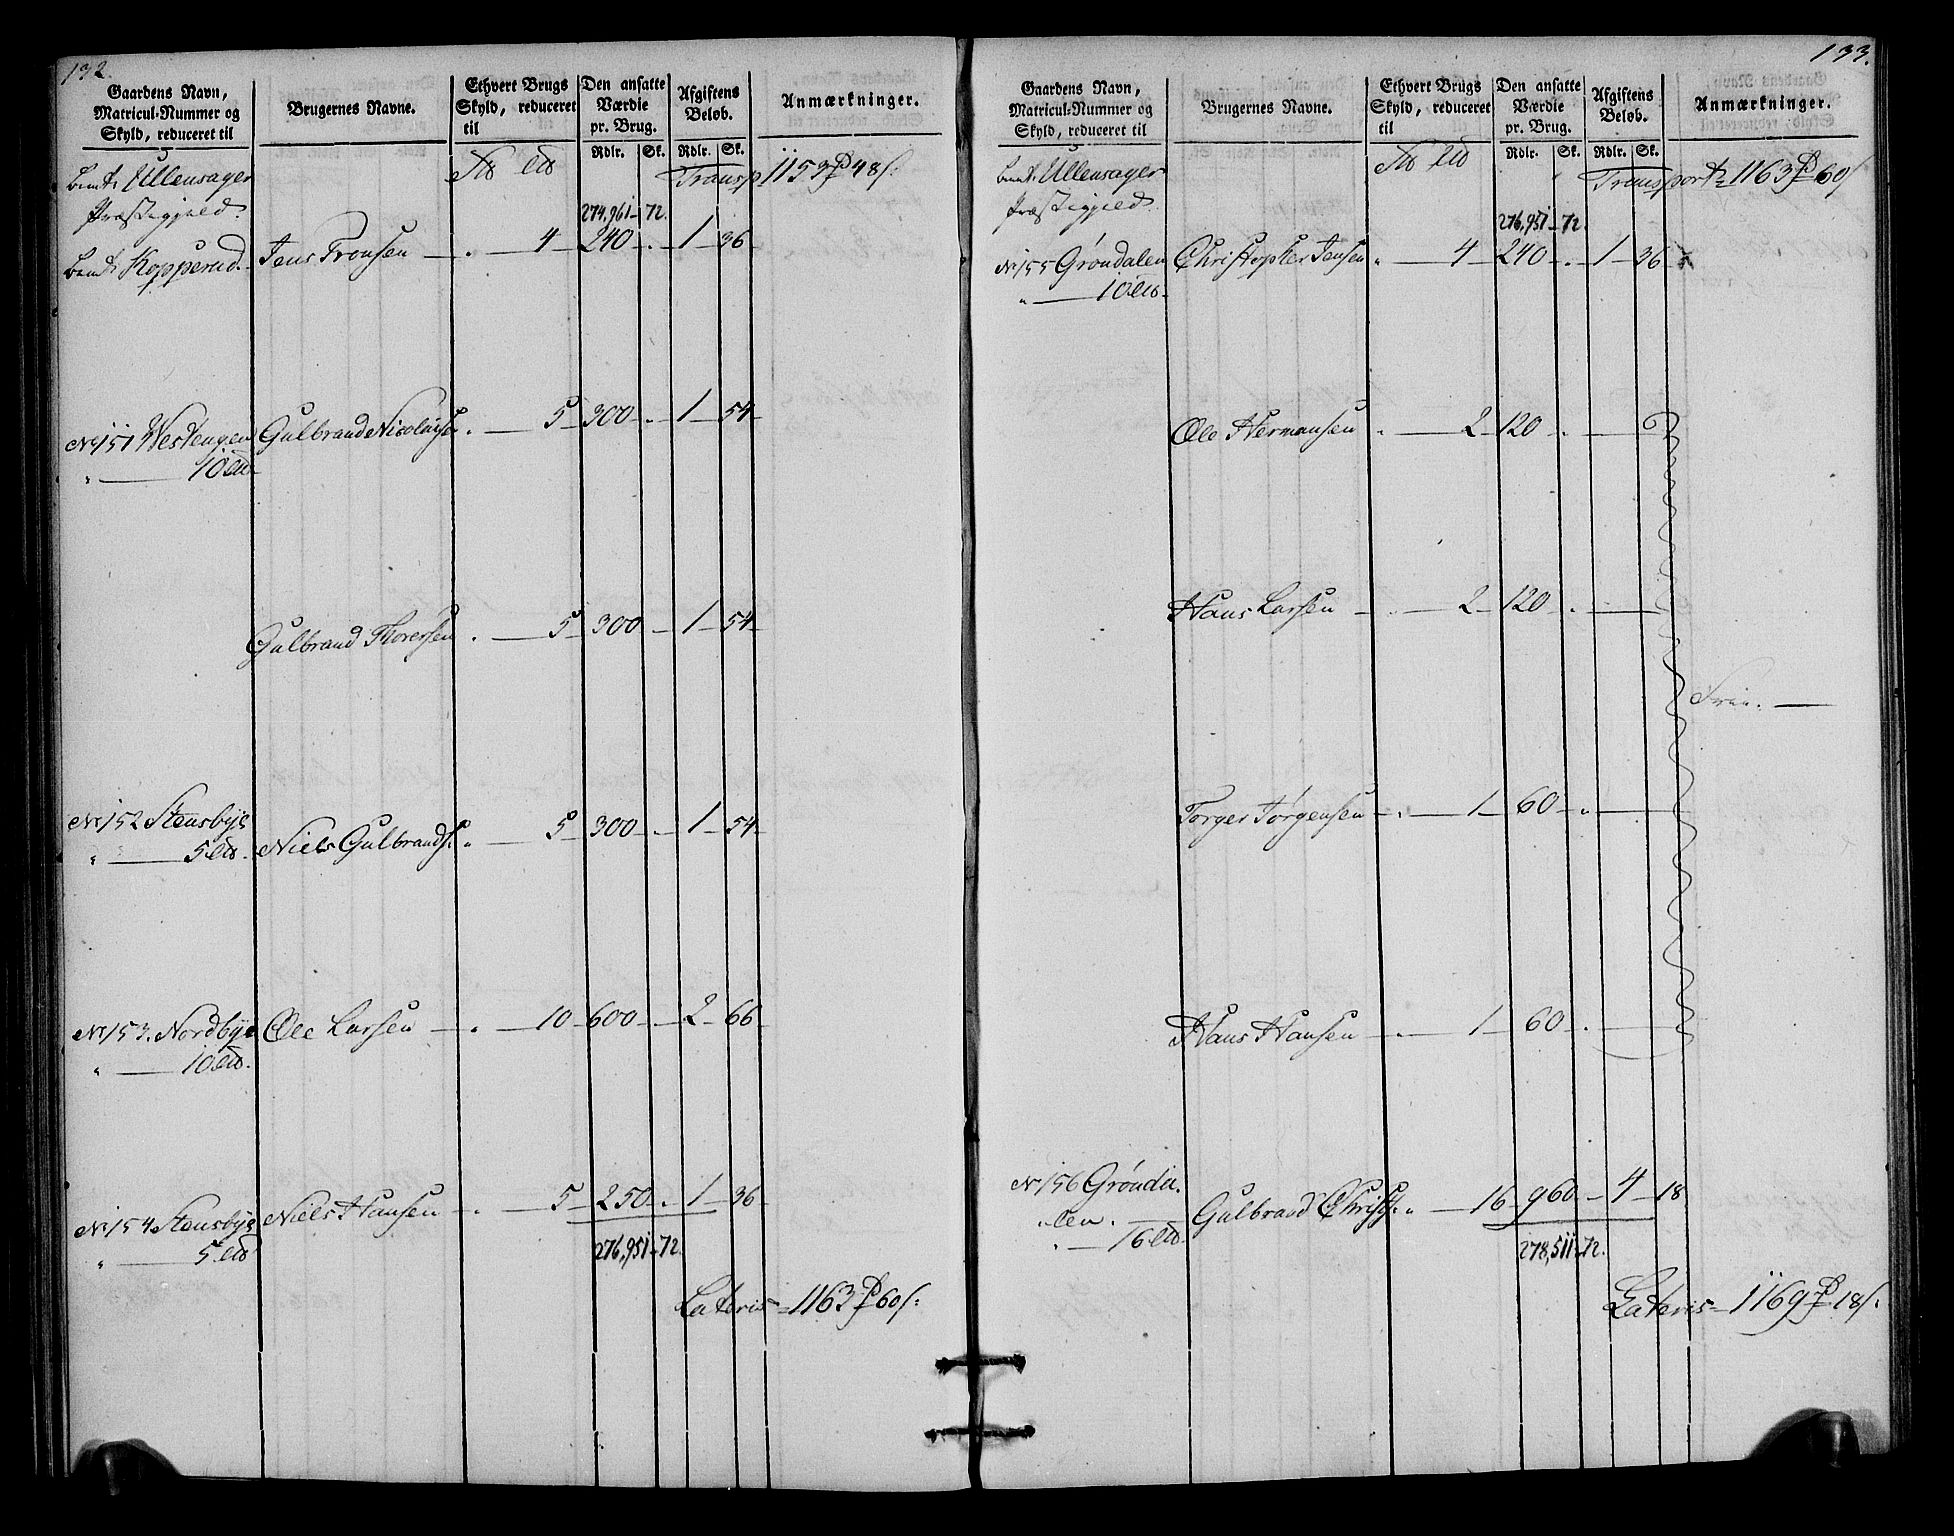 132.
Gaardens Navn, Matricul-Nummer og Skyld, reduceret til
Brugernes Navne.
Ethvert Brugs Skyld, reduceret til
Den ansatte Værdie pr. Brug.
Afgiftens Beløb.
Anmærkninger.
Rdlr. Sk. Rdlr. Sk.
Ullensager
Transp 1153 48
Præstegjeld.
274,961 72.
Kopperud. Jens Tronsen 4 240 1 36
No 151 Westengen Gulbrand Nicolaisen 5 300 1 54
10
Gulbrand Thorersen 5 300 1 54
No 152 Stensbye
5 Niels Gulbrands: 5 300 1 54
No 153. Nordbye Ole Larsen 10 600 2 66
10
No 154 Stensbye Niels Hansen 5 250 1 36
5
276,951 72.
Lateris 1163 60
133.
Gaardens Navn, Matricul-Nummer og Skyld, reduceret til
Brugernes Navne.
Ethvert Brugs Skyld, reduceret til
Den ansatte Værdie pr. Brug.
Afgiftens Beløb.
Anmærkninger.
Rdlr. Sk. Rdlr. Sk.
Ullensager
Transport 1163 60
Præstegjeld.
276,951 72.
No 155 Grøndalen Christopher Jensen 4 240 1 36
10
Ole Hermansen 2 120
Hans Larsen 2 120
Frie.
Torger Jørgensen 1 60
Hans Hansen 1 60
No 156 Grønda
len. Gulbrand Christ: 16 960 4 18
16
278,511 72.
Lateris 1169 18